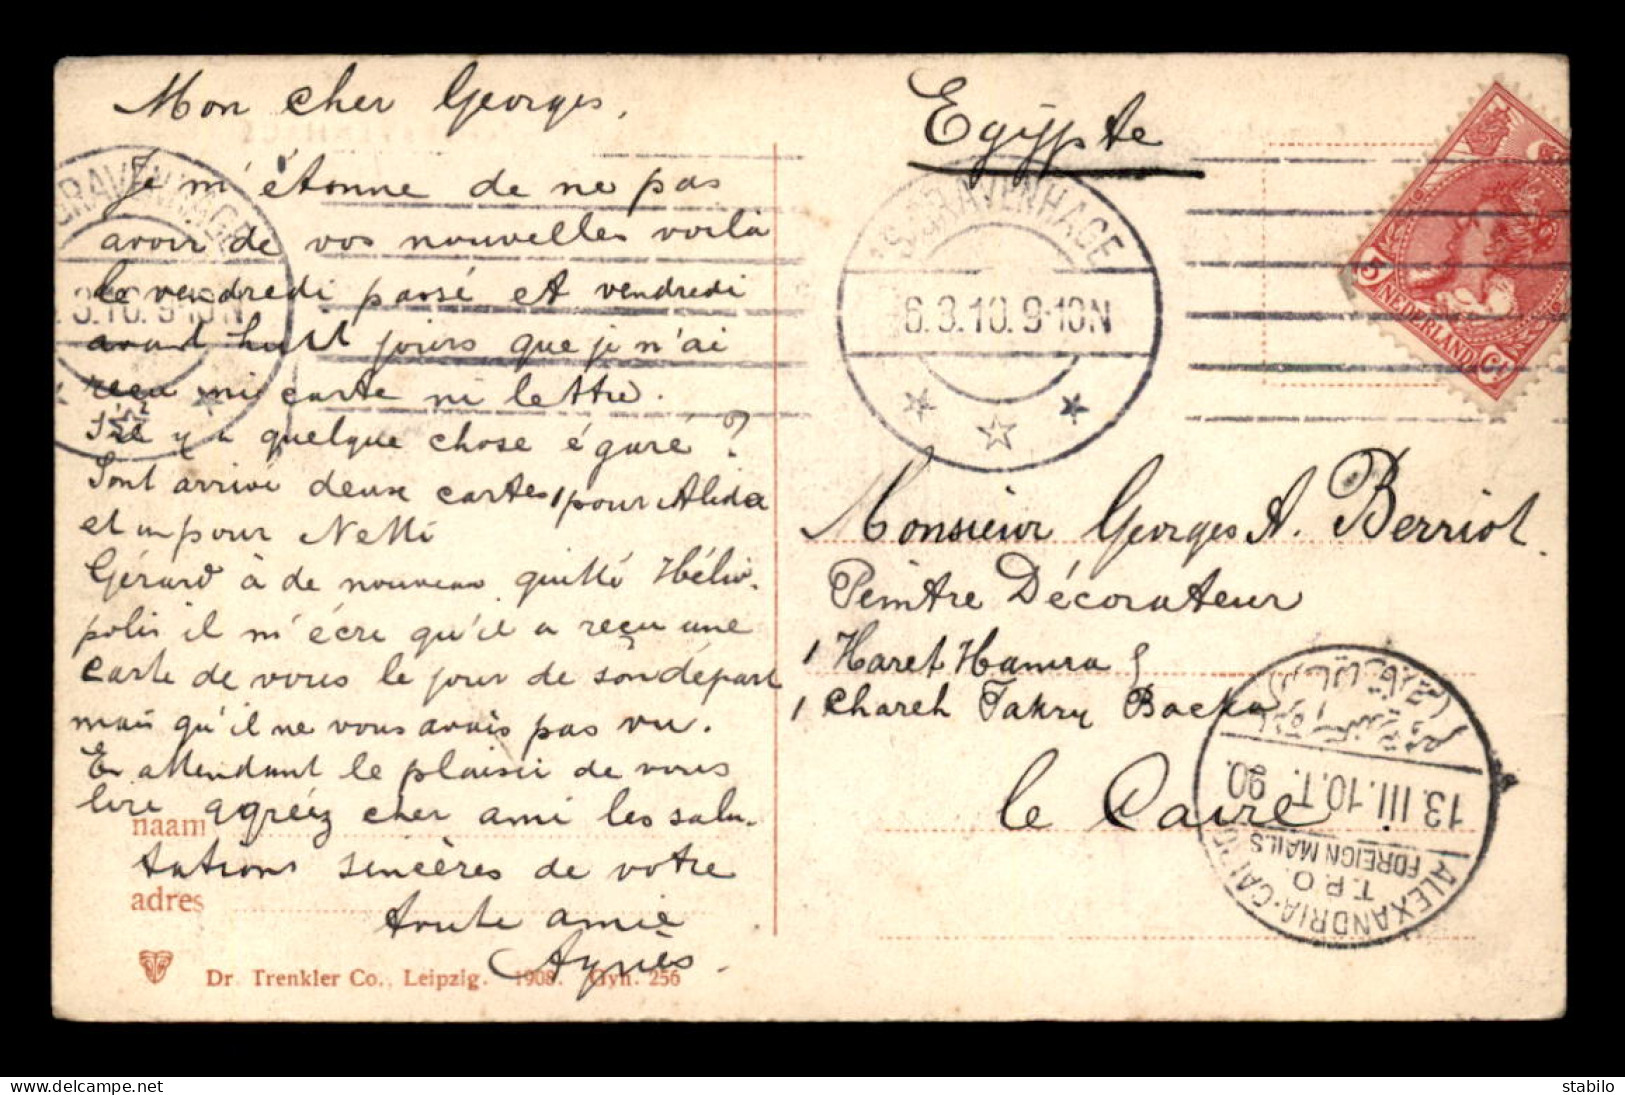 Mon cher Georges,
Je m'étonne de ne pas
avoir de vos nouvelles voilà
le vendredi passé et vendredi
avant huit jours que je n'ai
reçu ni carte ni lettre.
y a quelque chose égaré?
Sont arrivé deux cartes, 1 pour Alida
et un pour Netti
Gérard à de nouveau quitté Hélio-
polis il m'écri qu'il a reçu une
carte de vous le jour de son départ
mais qu'il ne vous avais pas vu.
En attendant le plaisir de vous
lire agréez cher ami les salu-
tations sincères de votre
toute amie
Agnès.
naam
adres
Dr. Trenkler Co., Leipzig. 1908. Gyn. 256
Egÿpte
'S GRAVENHAGE
6.3.10. 9-10N
'S GRAVENHAGE
3.10. 9-10N
5 NEDERLAND Ct
Monsieur Georges A. Berriot.
Peintre Décorateur
1 Haret Hamra
1 Chareh Fakry Backa
le Caire.
ALEXANDRIA-CAIRO
T.P.O.
FOREIGN MAILS
13.III.10.T.
90.
stabilo